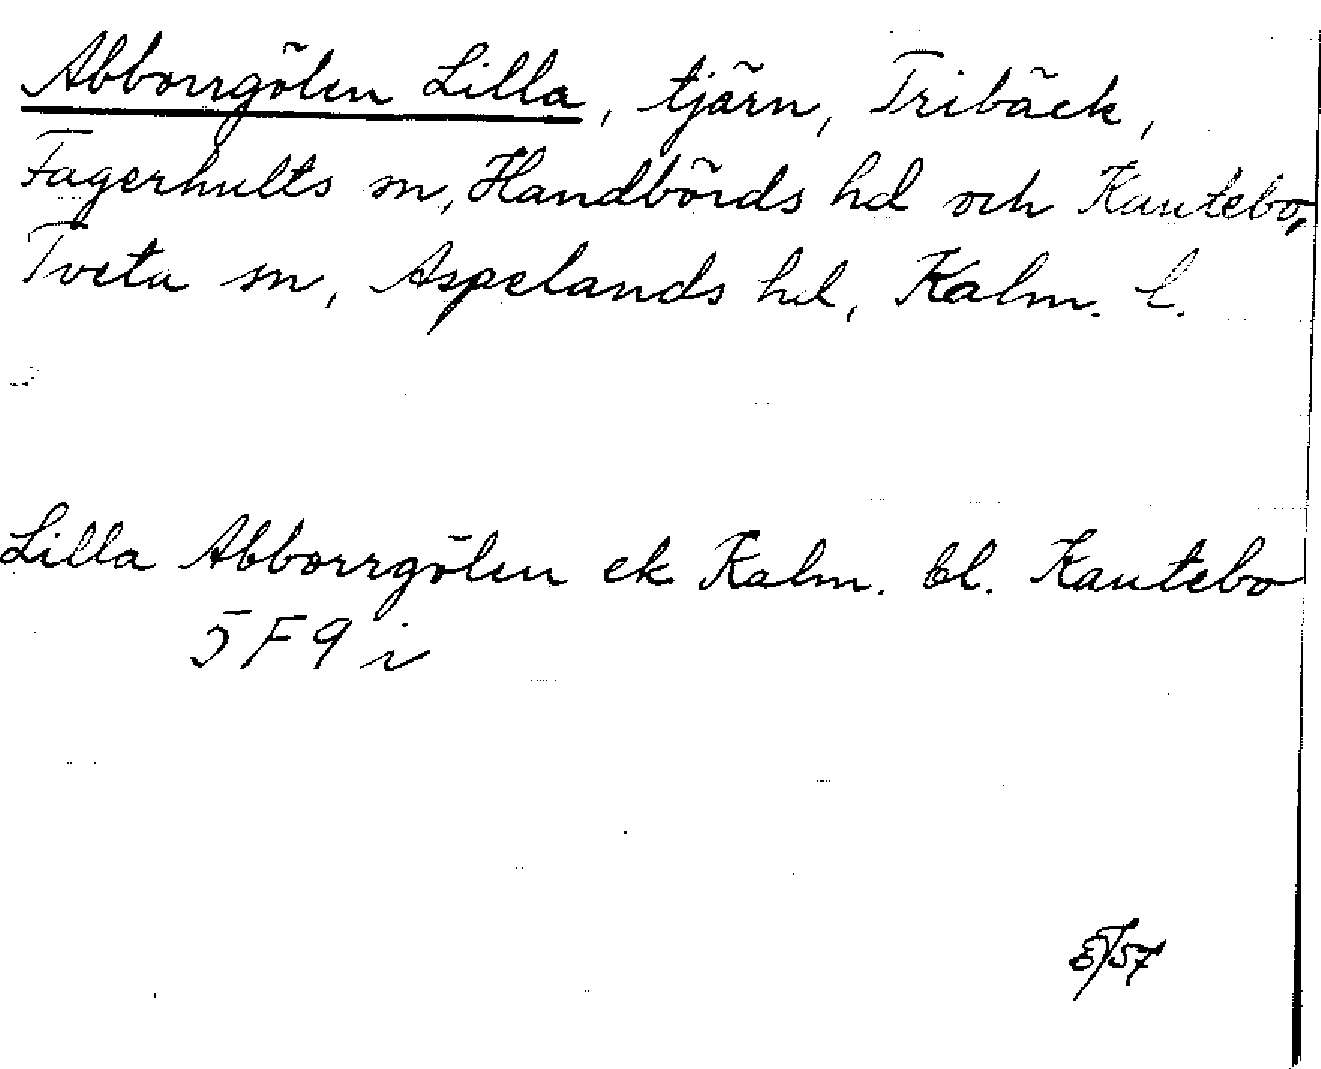 Abborrgölen Lilla, tjärn, Tribäck,
Fagerhults sn, Handbörds hd och Kautebo,
Tveta sn, Aspelands hd, Kalm. l.
Lilla Abborrgölen ek Kalm. bl. Kautebo
5F9i